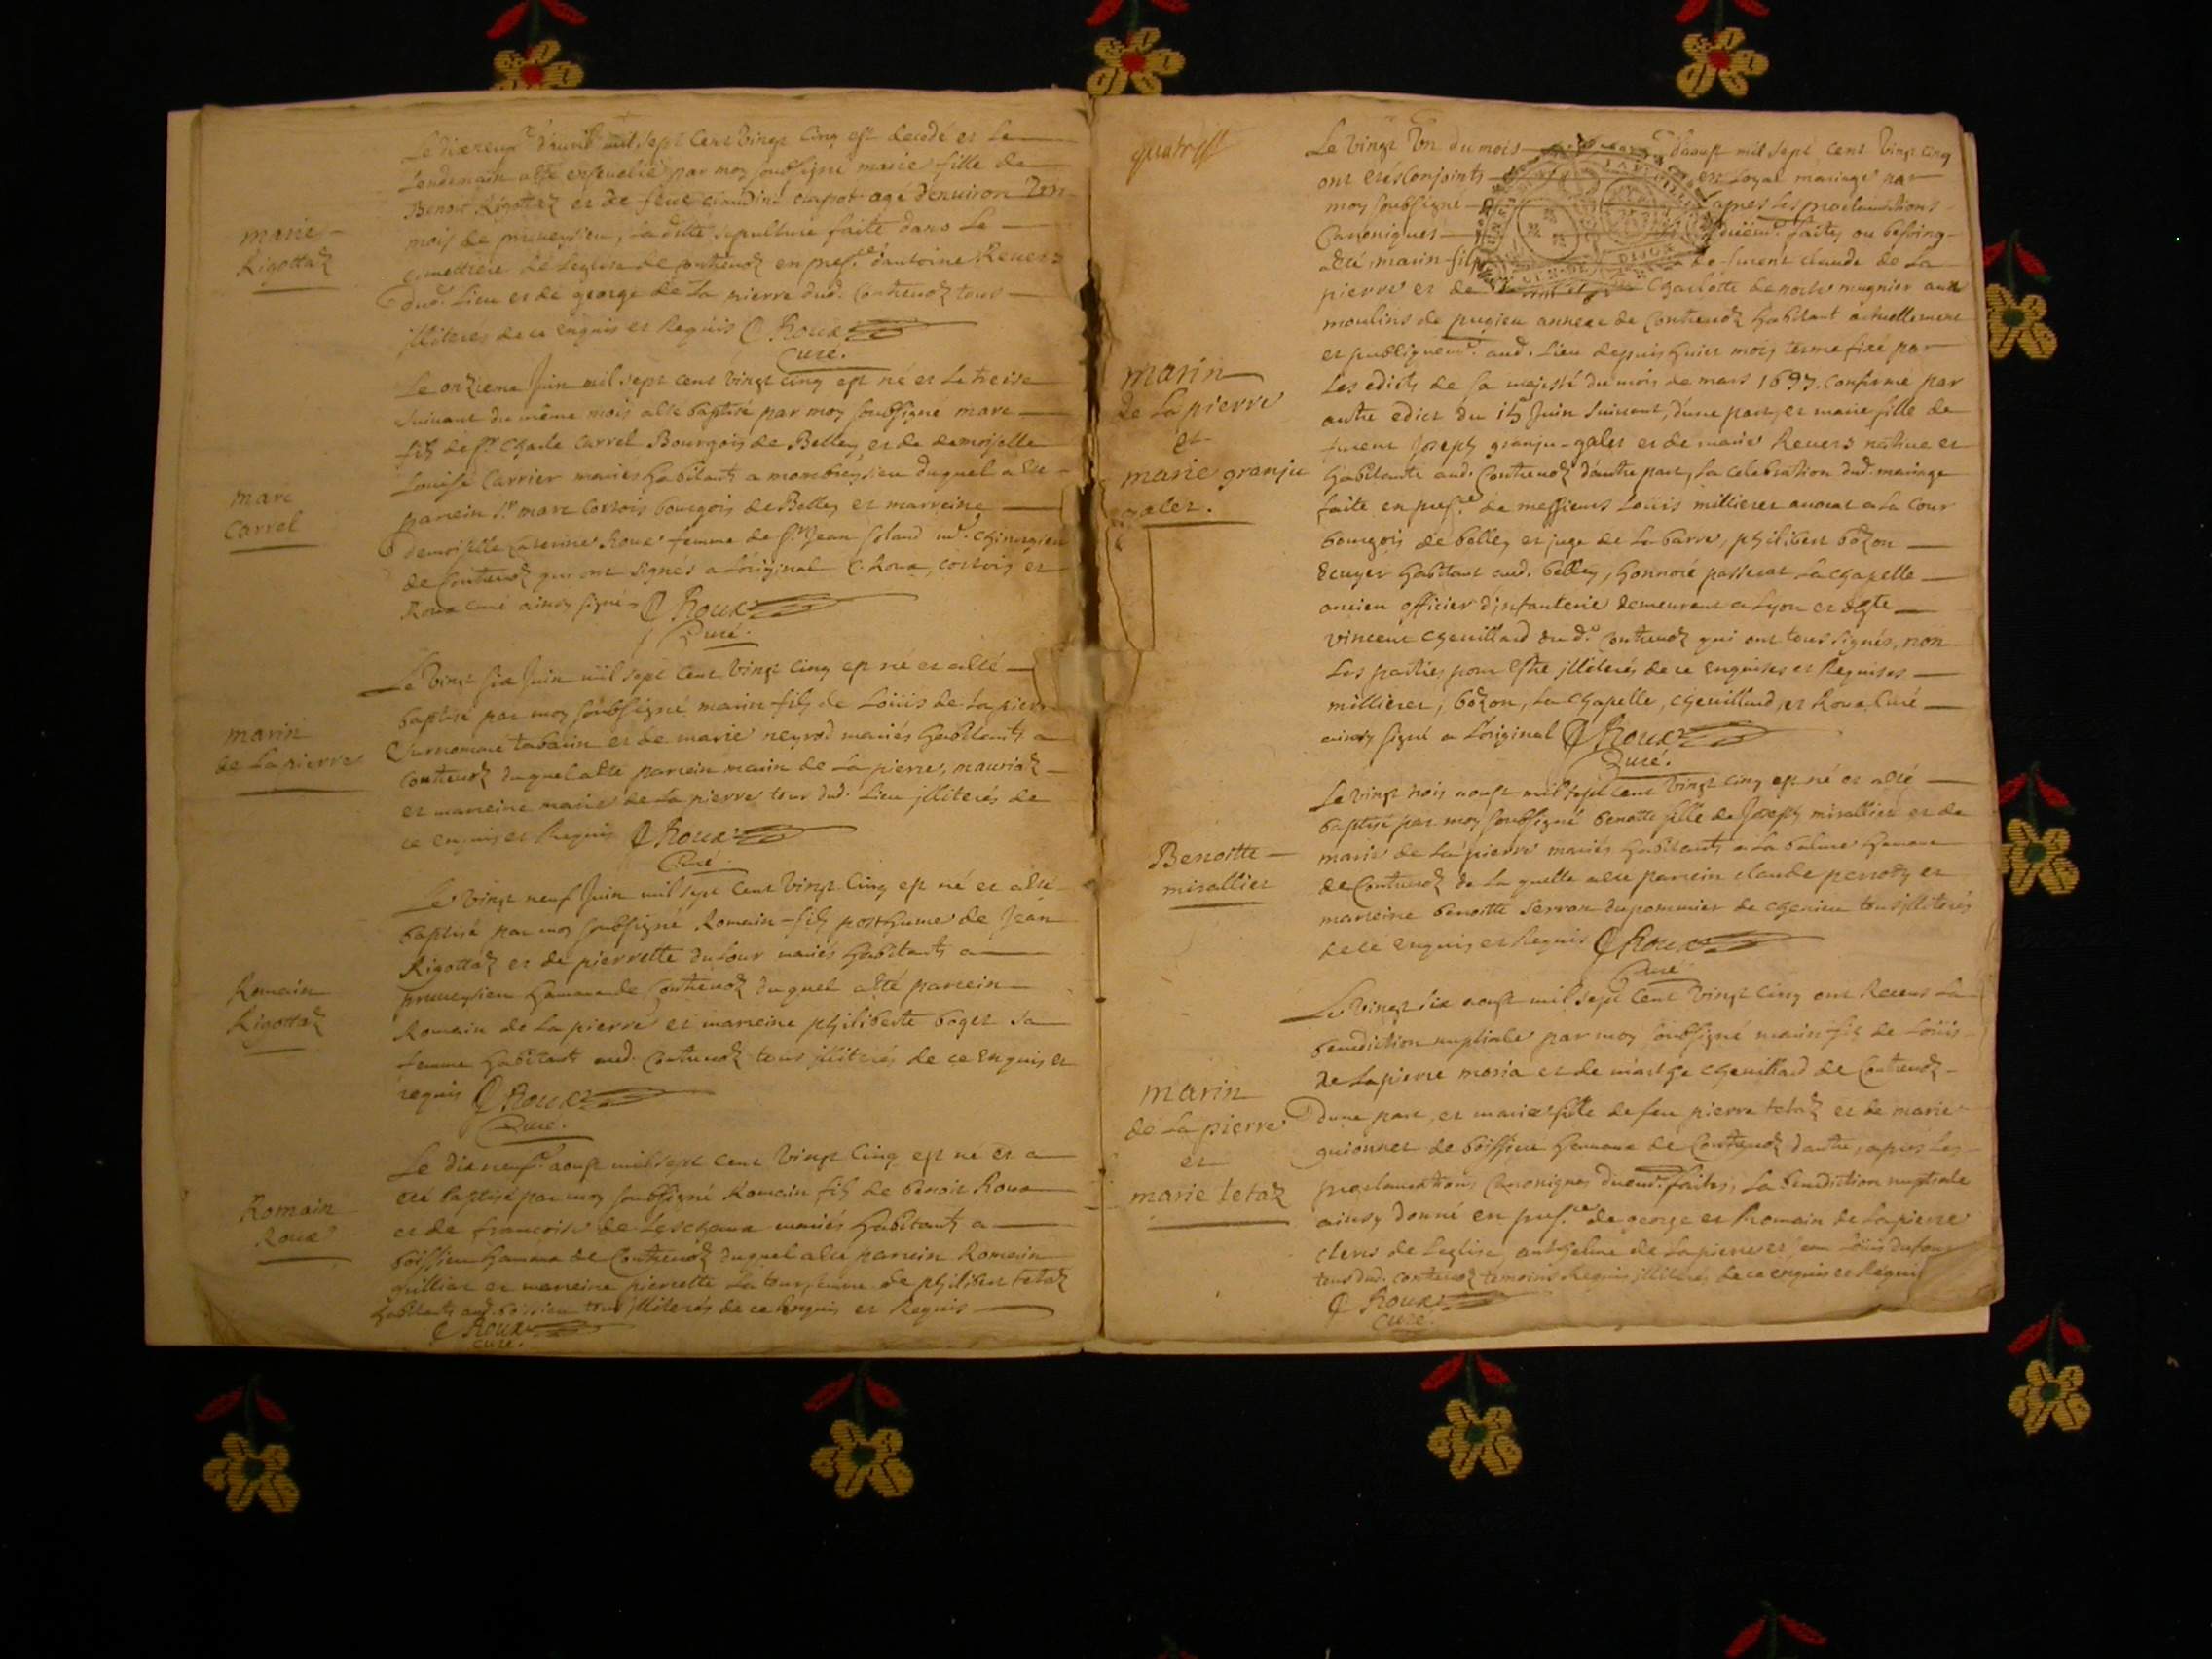 marie
Rigottaz
Le dixneuf.e d'avril mil sept cent vingt cinq est decedé et le
lendemain a esté ensevelie par moy soubsigné marie fille de
Benoit Rigottaz et de feue claudine chapot agé d'environ
mois de pruveysieu, la ditte sepulture faite dans le
cimettiere de leglise de Contrevoz en pres.ce d'antoine Revers
dud. lieu et de george de la pierre dud. Contrevoz tous
illiteres de ce enquis et Requis Roux
Curé.
marc
Carrel
Le onzieme Juin mil sept cent vingt cinq est né et le treize
suivant du même mois a esté baptisé par moy soubsigné marc
fils de Sr. Charle Carrel Bourgois de Belley, et de demoiselle
Louise Carrier mariés habitants a montbreysieu duquel a esté
parrein Sr. marc Cortois bourgois de Belley et marreine
demoiselle Caterine Roux femme de Sr. Jean Goland m.e chirurgien
de Contrevoz qui ont signés a l'original C. Roux, cortois et
Roux curé ainsy signés Roux
Curé.
marin
de la pierre
Le vingt six Juin mil sept cent vingt cinq est né et a esté
baptisé par moy soubsigné marin fils de Loüis de la pierre
surnommé tabarin et de marie neyrod mariés habitants a
Contrevoz duquel a esté parrein marin de la pierre, mauriaz
et marreine marie de la pierre tous dud. lieu illiterés de
ce enquis et Requis Roux
Curé.
Romain
Rigottaz
Le vingt neuf Juin mil sept cent vingt cinq est né et a esté
baptisé par moy soubsigné Romain fils posthume de Jean
Rigottaz et de pierrette dufour mariés habitants a
pruveysieu hameau de Contrevoz duquel a esté parrein
Romain de la pierre et marreine philiberte boget sa
femme habitant aud. Contrevoz tous illiterés de ce enquis et
requis Roux
Curé.
Romain
Roux
Le dix neuf.e aoust mil sept cent vingt cinq est né et a
esté baptisé par moy soubsigné Romain fils de benoit Roux
et de francoise de Lescheaux mariés habitants a
boissieu hameau de Contrevoz duquel a esté parrein Romain
guilliat et marreine pierrette la tour femme de philibert tetaz
habitants aud. boissieu tous illiterés de ce enquis et Requis
Roux
curé.
marin
de la pierre
et
marie granju
galet.
Le vingt un du mois d'aoust mil sept cent vingt cinq
ont étés Conjoints en loyal mariage par
moy soubsigné apres les proclamations
Canoniques düem.t faites ou besoing
a été, marin fils de furent claude de la
pierre et de Charlotte benoite mugnier aux
moulins de pugieu annexe de Contrevoz habitant actuellement
et publiquem.t aud. lieu depuis huict mois terme fixé par
les edicts de sa majesté du mois de mars 1697. confirmé par
autre edict du 15 Juin suivant, d'une part, et marie fille de
furent Joseph granju-galet et de marie Revers native et
habitante aud. Contrevoz d'autre part, la celebration dud. mariage
faite en pres.ce de messieurs Loüis millieret avocat a la cour
bourgois de belley et juge de la barre, philibert bozon
Ecuyer habitant aud. belley, honnoré passerat la chapelle
ancien officier d'infanterie demeurant a Lyon et
vincent chevillard du d.t Contrevoz qui ont tous signés, non
les parties pour estre illiterés de ce enquises et Requises
millieret, bozon, la chapelle, chevillard, et Roux Curé
ainsy signé a l'original Roux
Curé.
Benoitte
mirallier
Le vingt trois aoust mil sept cent vingt cinq est né et a esté
baptisé par moy soubsigné benoitte fille de Joseph mirallier et de
marie de la pierre mariés habitants a la balme hameau
de Contrevoz de la quelle a esté parrein claude perrody et
marreine benoitte Serran du pommier de cheniers tous illiterés
de ce enquis et Requis Roux
Curé
marin
de la pierre
et
marie tetaz
Le vingt six aoust mil sept cent vingt cinq ont Receus la
benediction nuptiale par moy soubsigné marin fils de Loüis
de la pierre moria et de marthe chevillard de Contrevoz
d'une part, et marie fille de feu pierre tetaz et de marie
guionnet de boissieu hameau de Contrevoz d'autre, apres les
proclamations Canoniques duem.t faites, la benediction nuptiale
ainsy donné en pres.ce de george et Romain de la pierre
clercs de leglise, anthelme de la pierre et Jean Loüis dufour
tous dud. contrevoz temoins Requis illiterés de ce enquis et Requis
Roux
Curé.